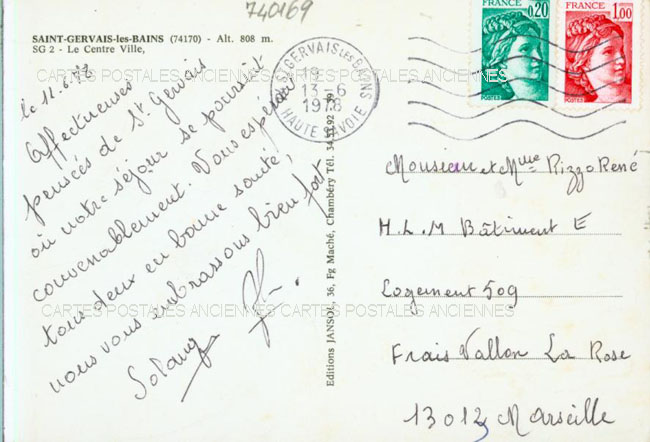 740169
SAINT-GERVAIS-les-BAINS (74170) - Alt. 808 m.
SG 2 - Le Centre Ville,
le 11.6.78
Affectueuses
pensées de St Gervais
où notre séjour se poursuit
convenablement. Vous espérons
tous deux en bonne santé,
nous vous embrassons bien fort
Solange
CARTES POSTALES ANCIENNES CARTES POSTALES ANCIENNES
CARTES POSTALES ANCIENNES CARTES POSTALES ANCIENNES
Editions JANSOL, 36, Fg Maché, Chambéry Tél. 34.53.92
ST GERVAIS LES BAINS
19
13-6
1978
HAUTE SAVOIE
0,20
1,00
Monsieur et Mme Rizzo René
H.L.M Bâtiment E
Logement 509
Frais Vallon La Rose
13012 Marseille